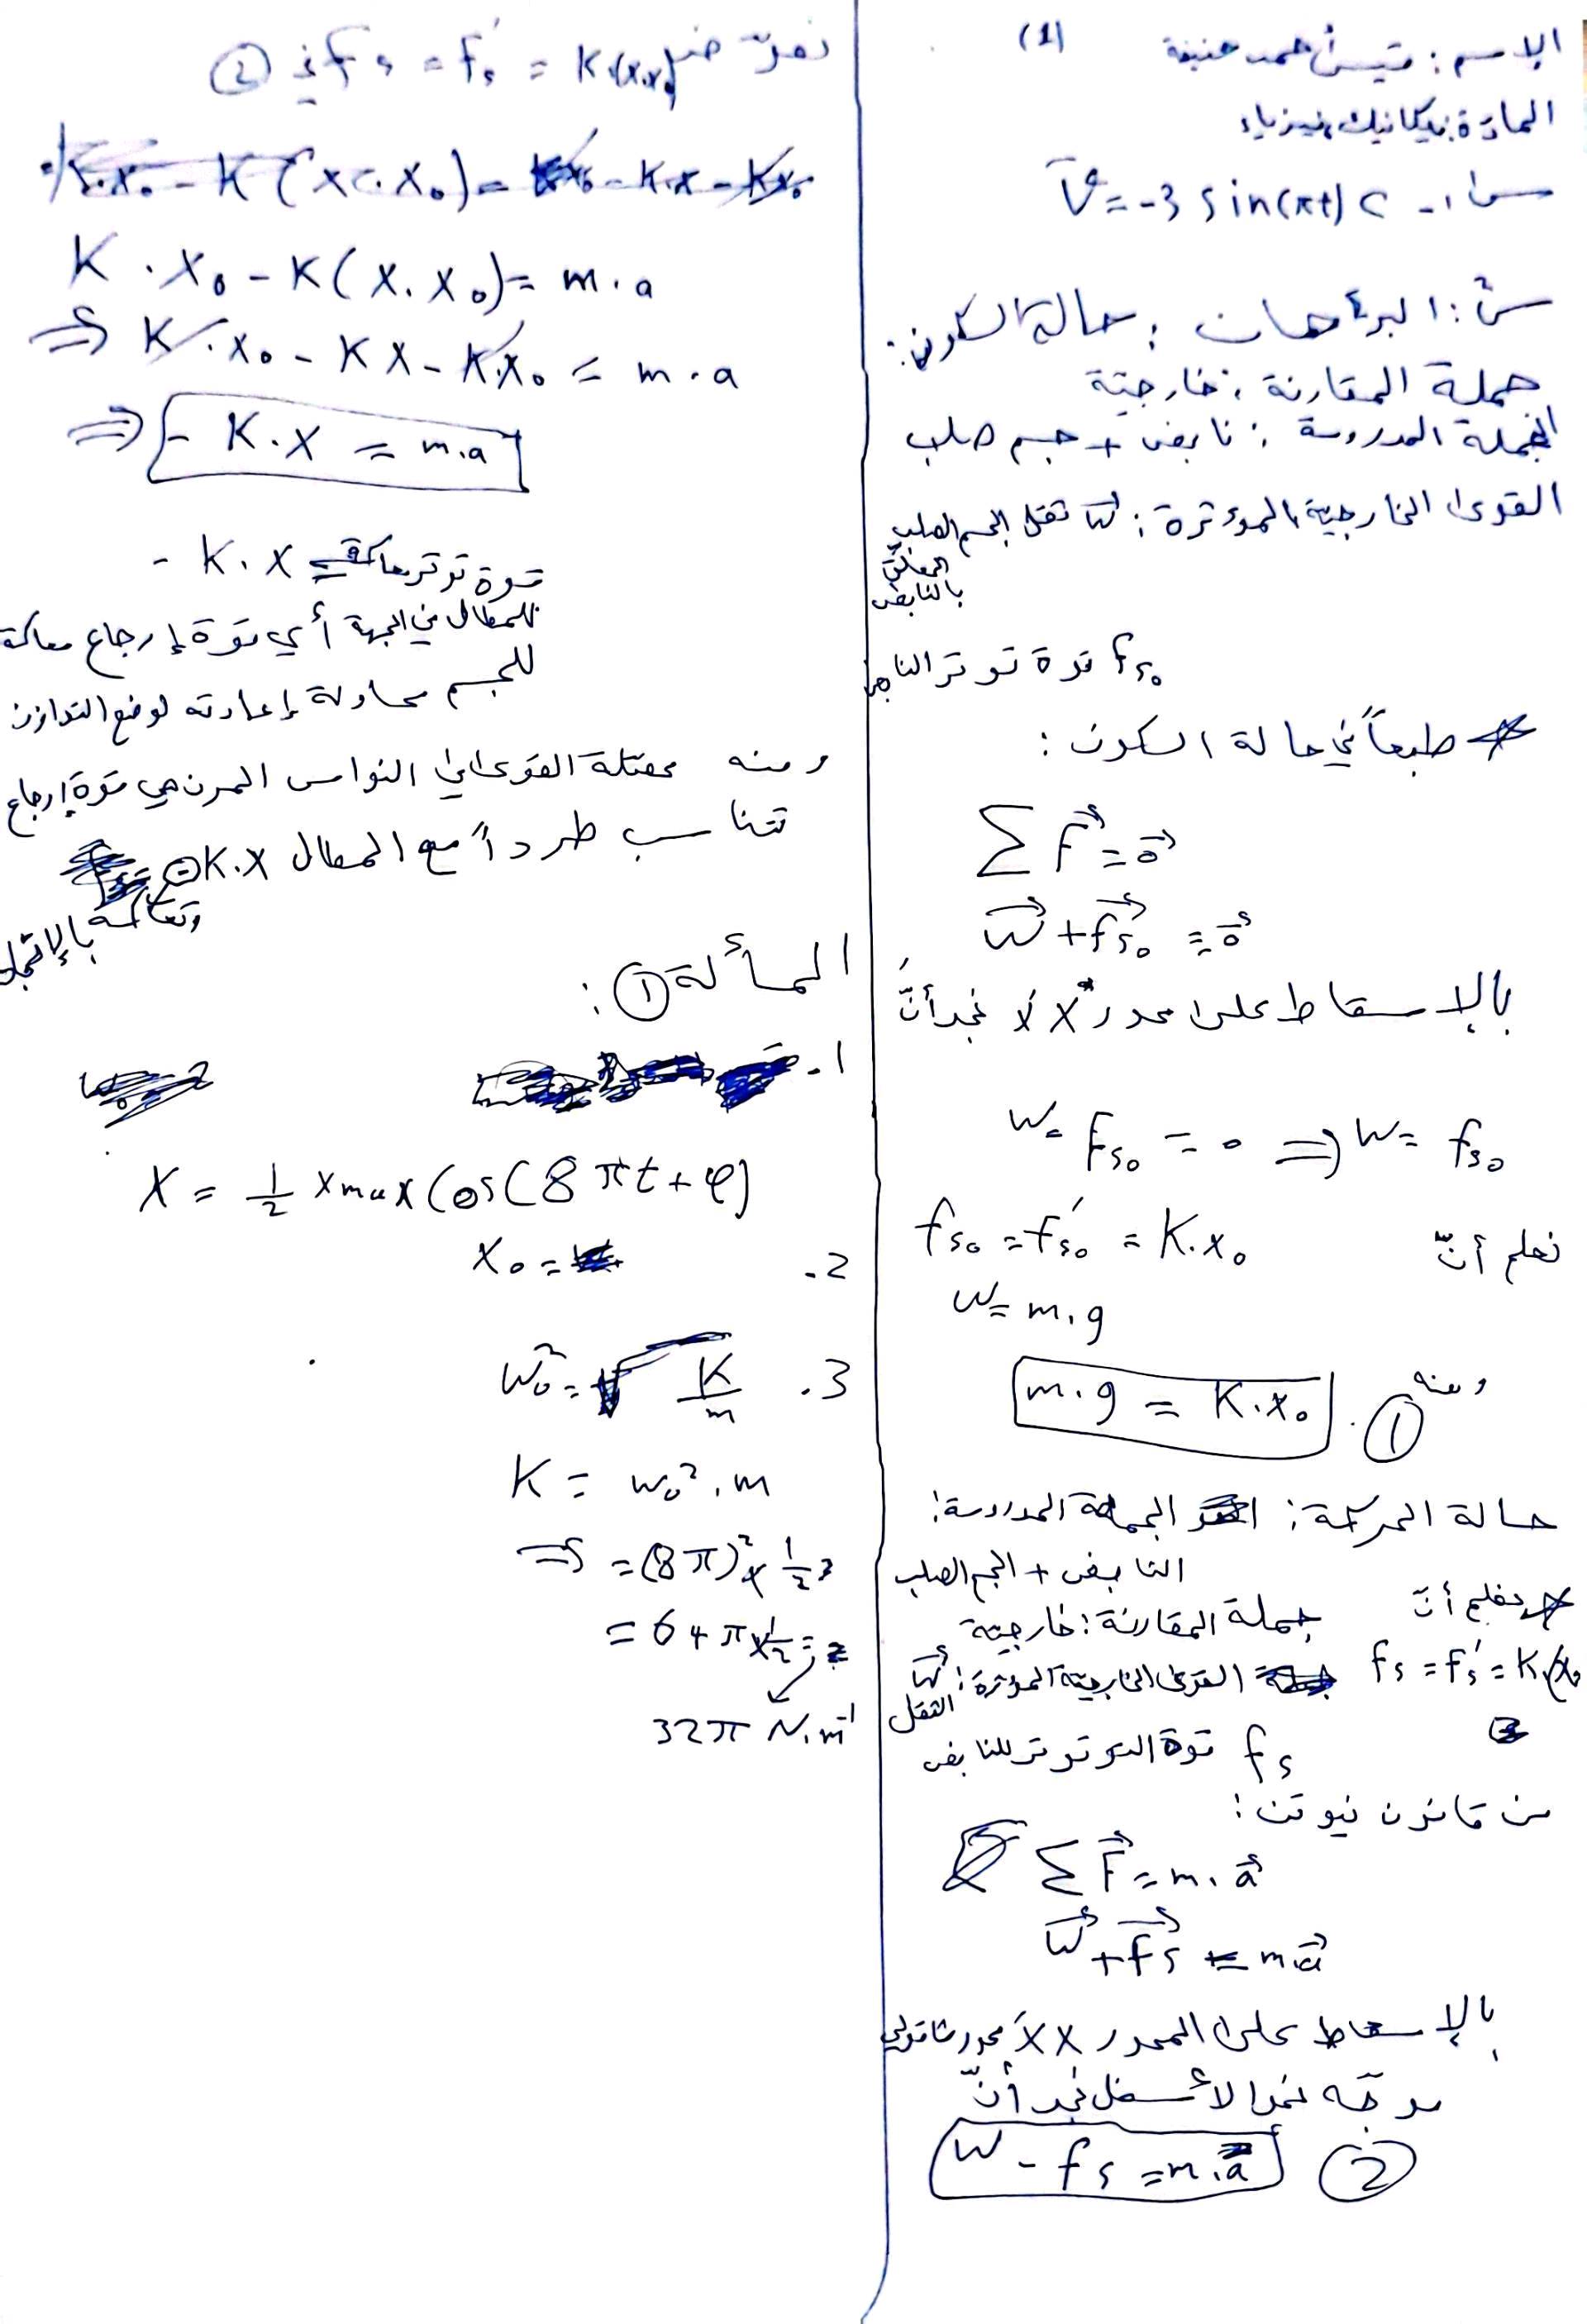 (1)
الاسم: قيس أحمد حنيفة
المادة: ميكانيك فيزياء
س١- v = -3 sin(πt) c
س٢: البرهان: حالة السكون:
جملة المقارنة: خارجية
الجملة المدروسة: نابض + جسم صلب
القوى الخارجية المؤثرة: w ثقل الجسم الصلب
المعلق
بالنابض
fs₀ قوة توتر النابض
طبعاً في حالة السكون:
∑F⃗ = 0⃗
W⃗ + fs₀⃗ = 0⃗
بالإسقاط على محور x x́ نجد أنّ
w - Fs₀ = 0 ⇒ w = fs₀
نعلم أنّ fs₀ = fs₀' = K.x₀
w = m.g
ومنه
m.g = K.x₀ ①
حالة الحركة: الجملة المدروسة:
النابض + الجسم الصلب
جملة المقارنة: خارجية
نعلم أنّ
fs = fs' = K(x.x₀
القوى الخارجية المؤثرة: w
الثقل
fs قوة التوتر للنابض
من قانون نيوتن:
∑F⃗ = m.a⃗
W⃗ + fs⃗ = m.a⃗
بالإسقاط على المحور x x́ محور شاقولي
موجّه نحو الأسفل نجد أنّ
W - fs = m.a ②
نعوّض fs = fs' = K.(x.x₀) في ②
K.x₀ - K(x.x₀) = m.a
⇒ K.x₀ - Kx - K.x₀ = m.a
⇒ - K.x = m.a
- K.x = قوة توتر معاكسة
للمطال في الجهة أي قوة إرجاع معاكسة
للجسم محاولة إعادته لوضع التوازن
ومنه محصلة القوى في النواس المرن هي قوة إرجاع
تتناسب طرداً مع المطال -K.x
وتعاكسه بالإتجاه
المسألة ①:
1.
X = 1/2 xmax Cos(8πt + φ)
2. x₀ =
3. w₀² = K/m
K = w₀².m
⇒ = (8π)² × 1/2
= 64π × 1/2 =
32π N.m⁻¹